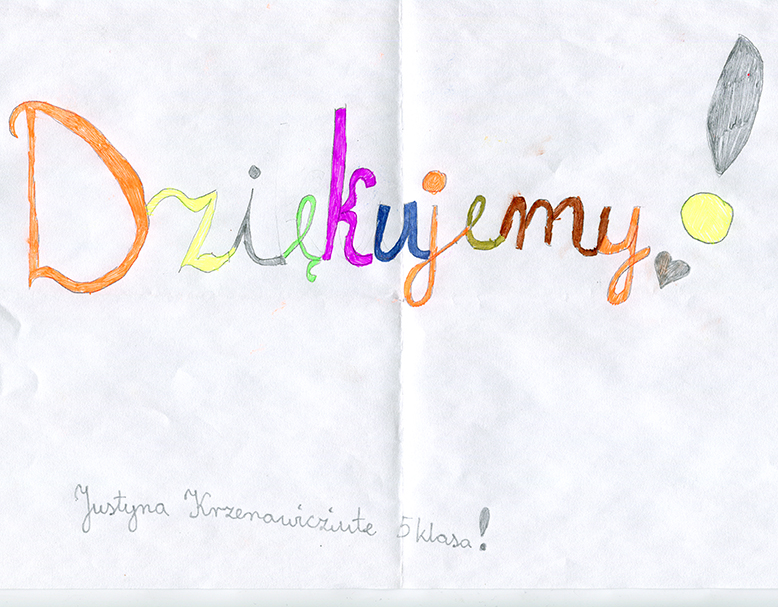 Dziękujemy!
Justyna Krzenawicziute 5 klasa!